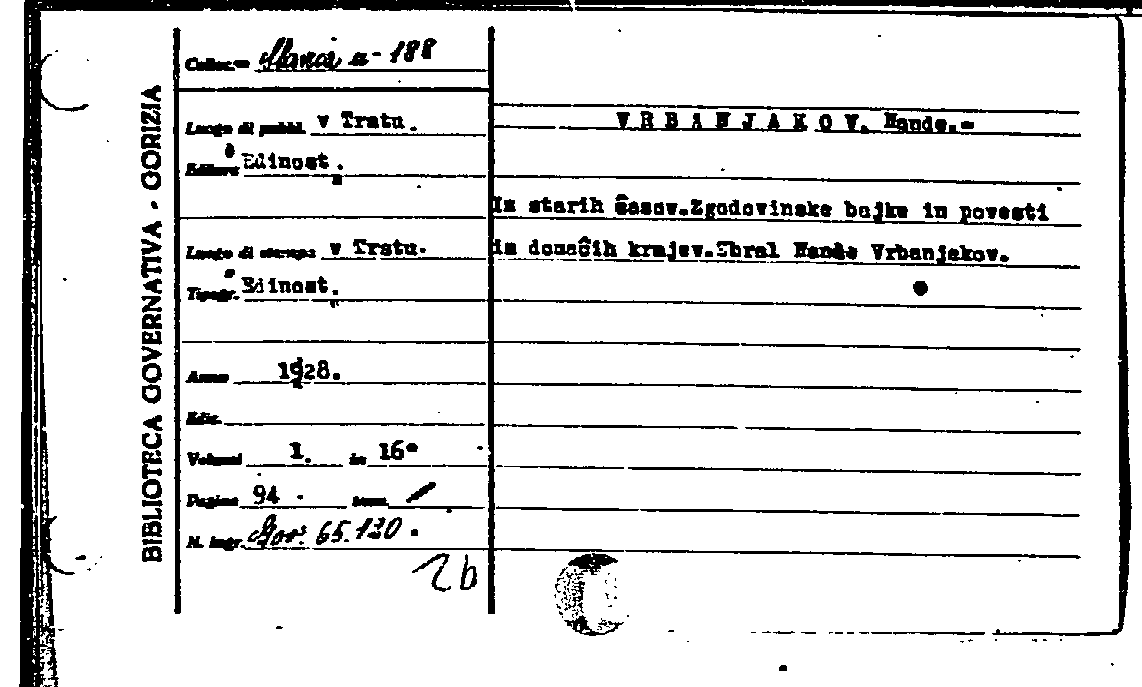 BIBLIOTECA GOVERNATIVA - GORIZIA
Colloc.= a - 188
Luogo di pubbl. v Trstu.
Editore Edinost.
Luogo di stampa v Trstu.
Tipogr. Edinost.
Anno 1928.
Ediz.
Volumi 1. in 16°
Pagine 94 .
N. ingr. Gor. 65.130.
2b
VRBANJAKOV. Nande.=
Iz starih časov.Zgodovinske bajke in povesti
iz domačih krajev.Zbral Nande Vrbanjakov.